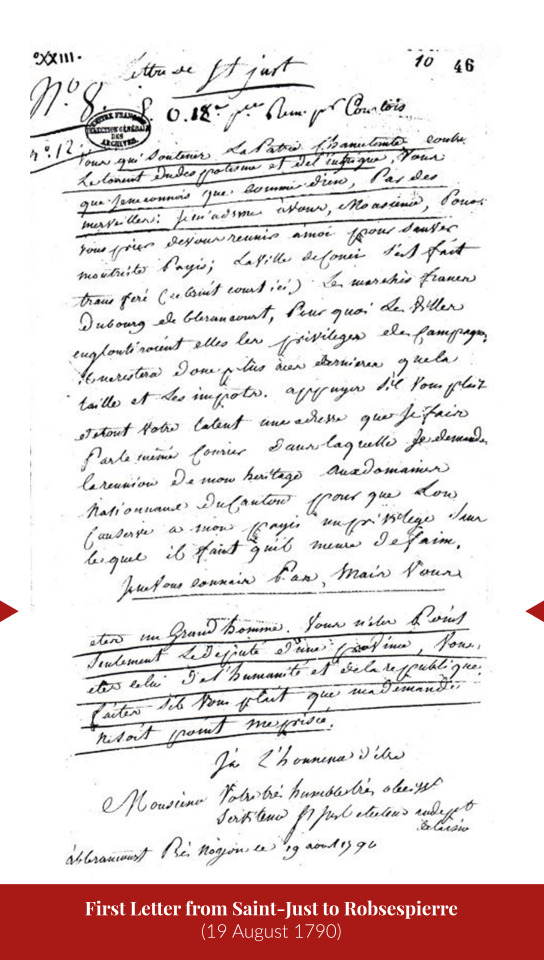 XXIII.
Lettre de St just
10 46
No. 8.
O. 18
Rem. pr Courtois
CENTRE FRANÇAIS
DIRECTION GÉNÉRALE
DES
ARCHIVES
no. 12.
Vous qui Soutenez La Patrie Chancelante contre
Le torrent du despotisme et de l'intrigue, Vous
que je ne connois que comme dieu, Par des
merveilles; je m'adresse à vous, Monsieur, Pour
vous prier de vous reunir a moi pour Sauver
mon triste Pays; La Ville de Couci s'est fait
transferé (ce bruit court ici) Les marchés francs
Du bourg de blerancourt, Pour quoi Les Villes
engloutiroient elles les privileges des Campagnes
il ne restera donc plus a ces dernieres que la
taille et Les impots. appuyez s'il Vous plait
de tout Votre talent une adresse que Je fais
Par le même Courier Dans laquelle Je demande
la reunion de mon heritage aux domaines
Nationnaux du Canton pour que Lon
Conserve a mon pays un privilege Sans
lequel il faut qu'il meure de faim.
Je ne Vous connais Pas, Mais Vous
etes un Grand homme. Vous n'etes Point
Seulement Le deputé d'une province, Vous
etes celui de l'humanité et de la republique.
faites s'il Vous plait que ma demande
ne soit point meprisée.
J'ai L'honneur d'être
Monsieur Votre très humble très obeisst
Serviteur St Just electeur au dept
de laisne
à blerancourt Près Noyon le 19 aout 1790
First Letter from Saint-Just to Robsespierre
(19 August 1790)